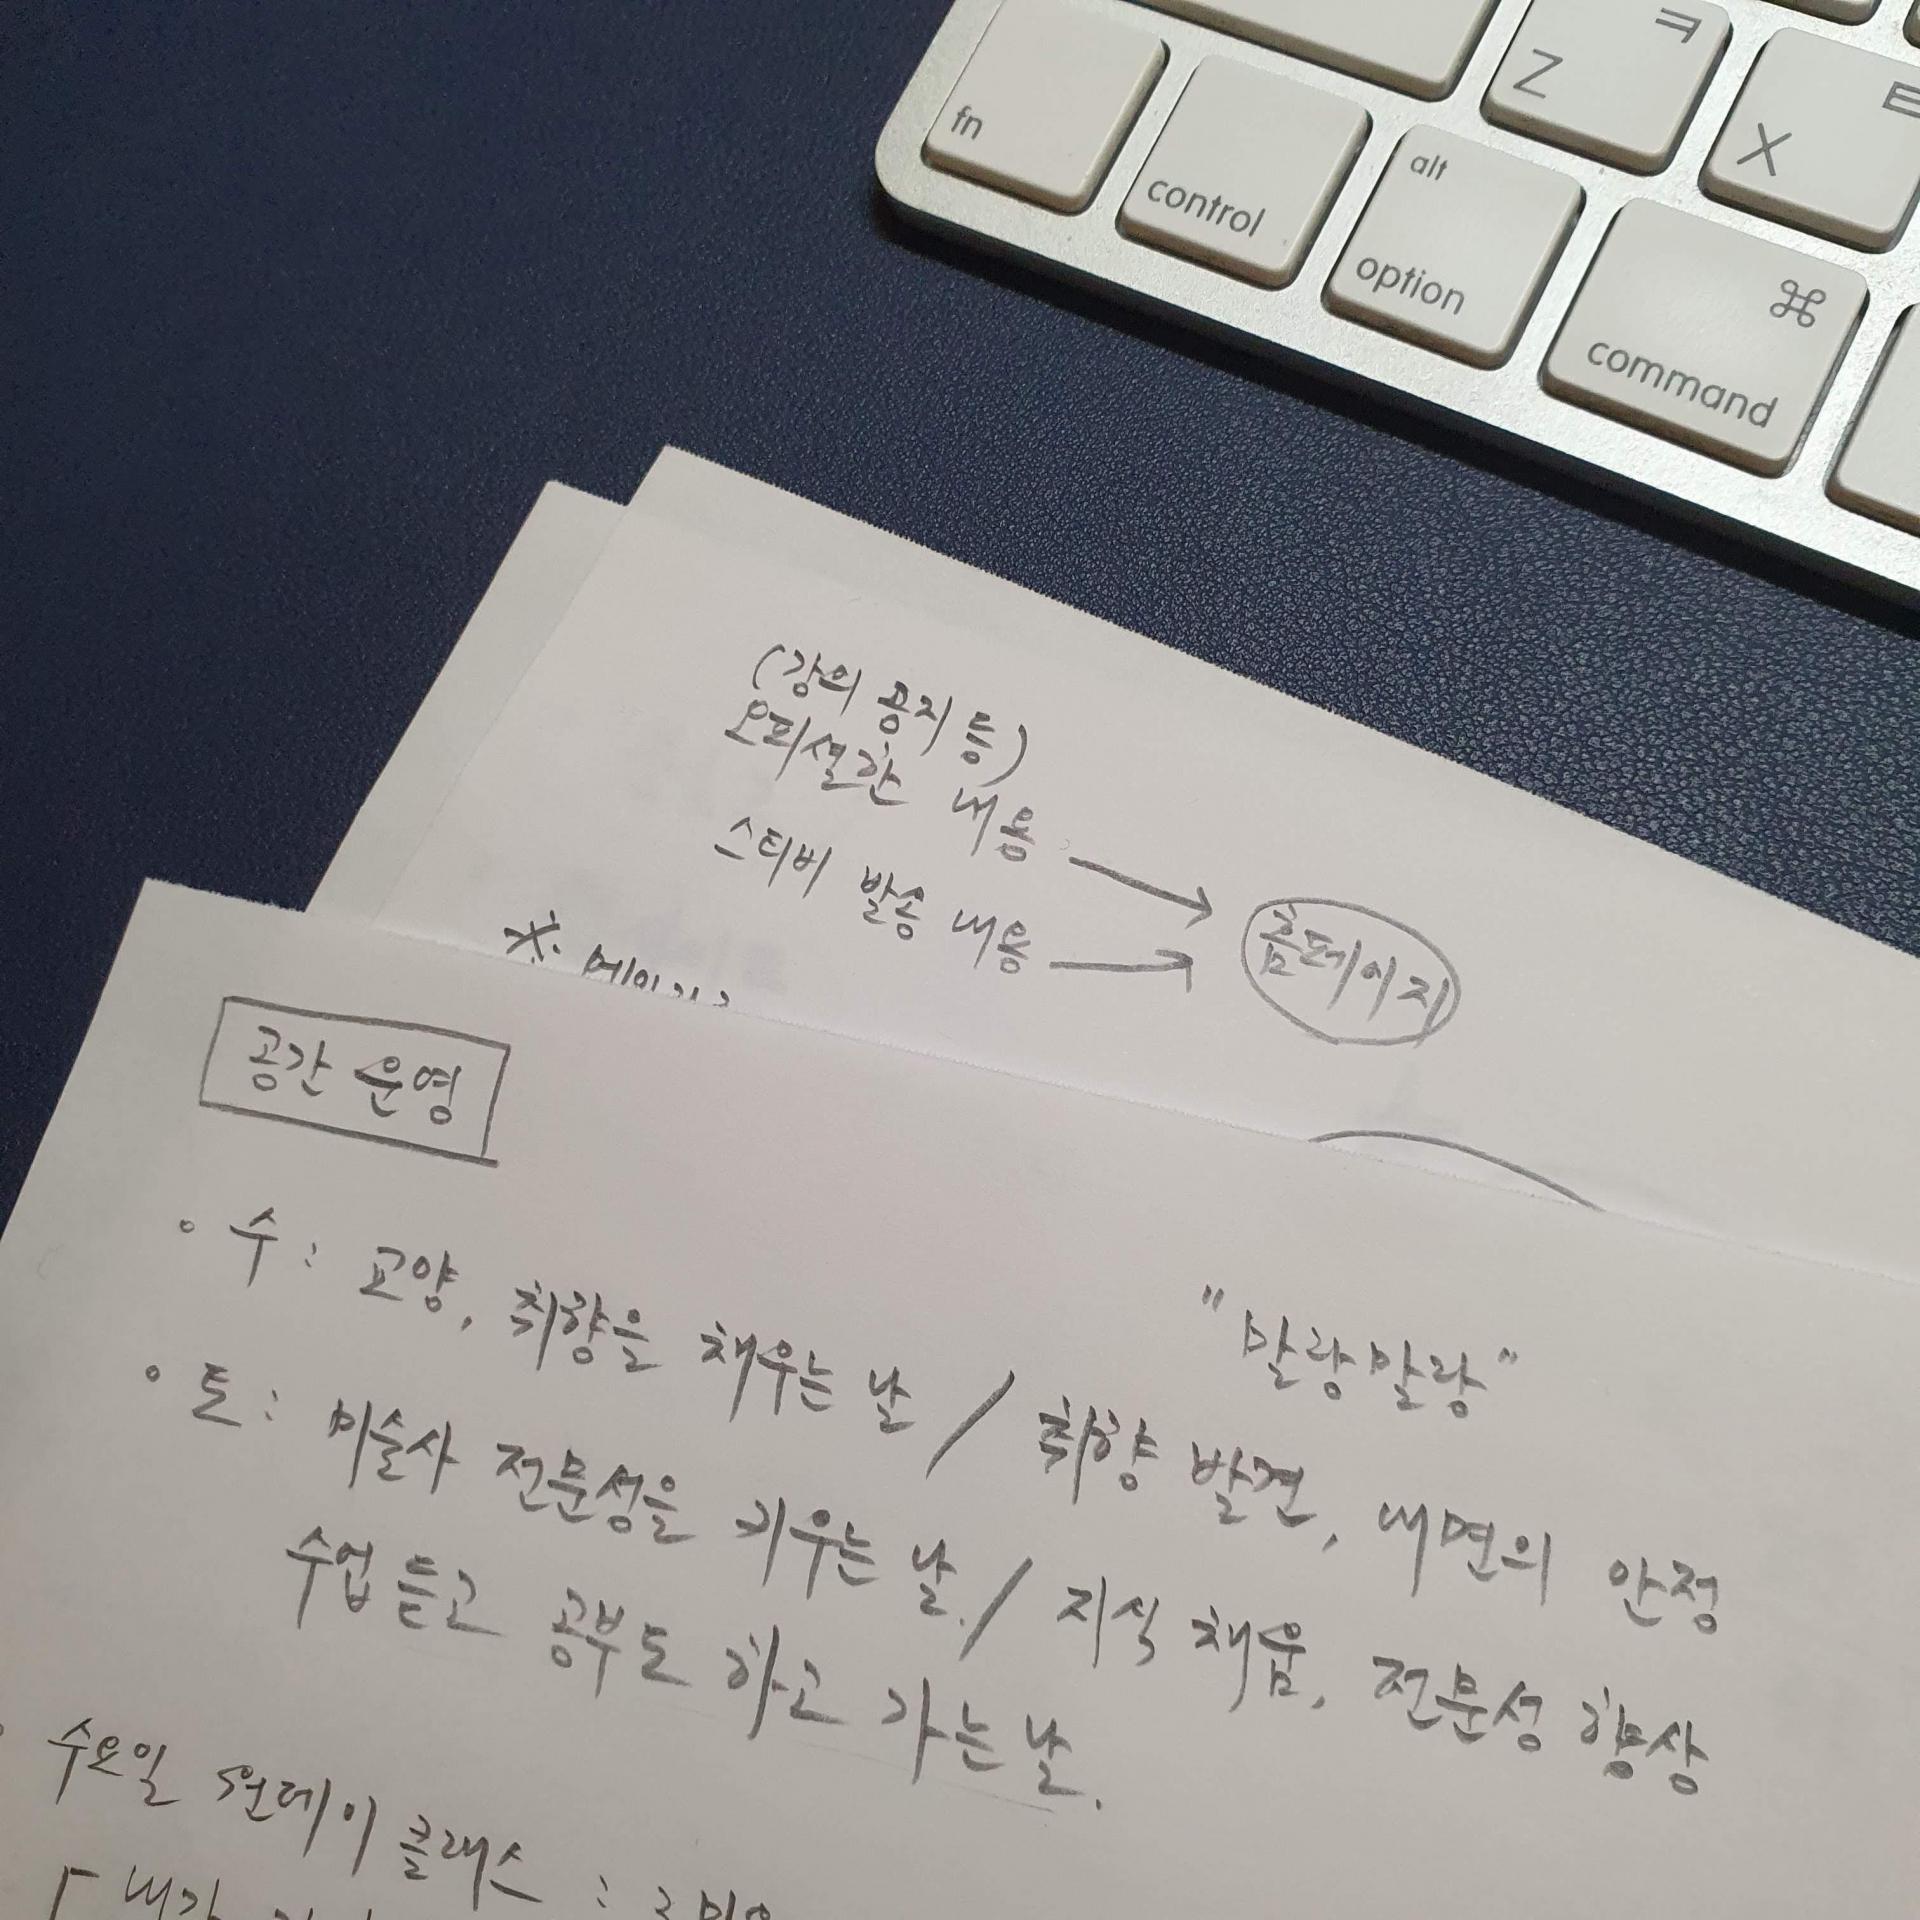 ㅋ
Z
ㅌ
X
fn
control
alt
option
⌘
command
(강의 공지 등)
오피셜한 내용 →
스티비 발송 내용 →
홈페이지
※
공간 운영
"말랑말랑"
• 수 : 교양, 취향을 채우는 날 / 취향 발견, 내면의 안정
• 토 : 미술사 전문성을 키우는 날. / 지식 채움, 전문성 향상
수업 듣고 공부도 하고 가는 날.
• 수요일 원데이 클래스 :
「내가